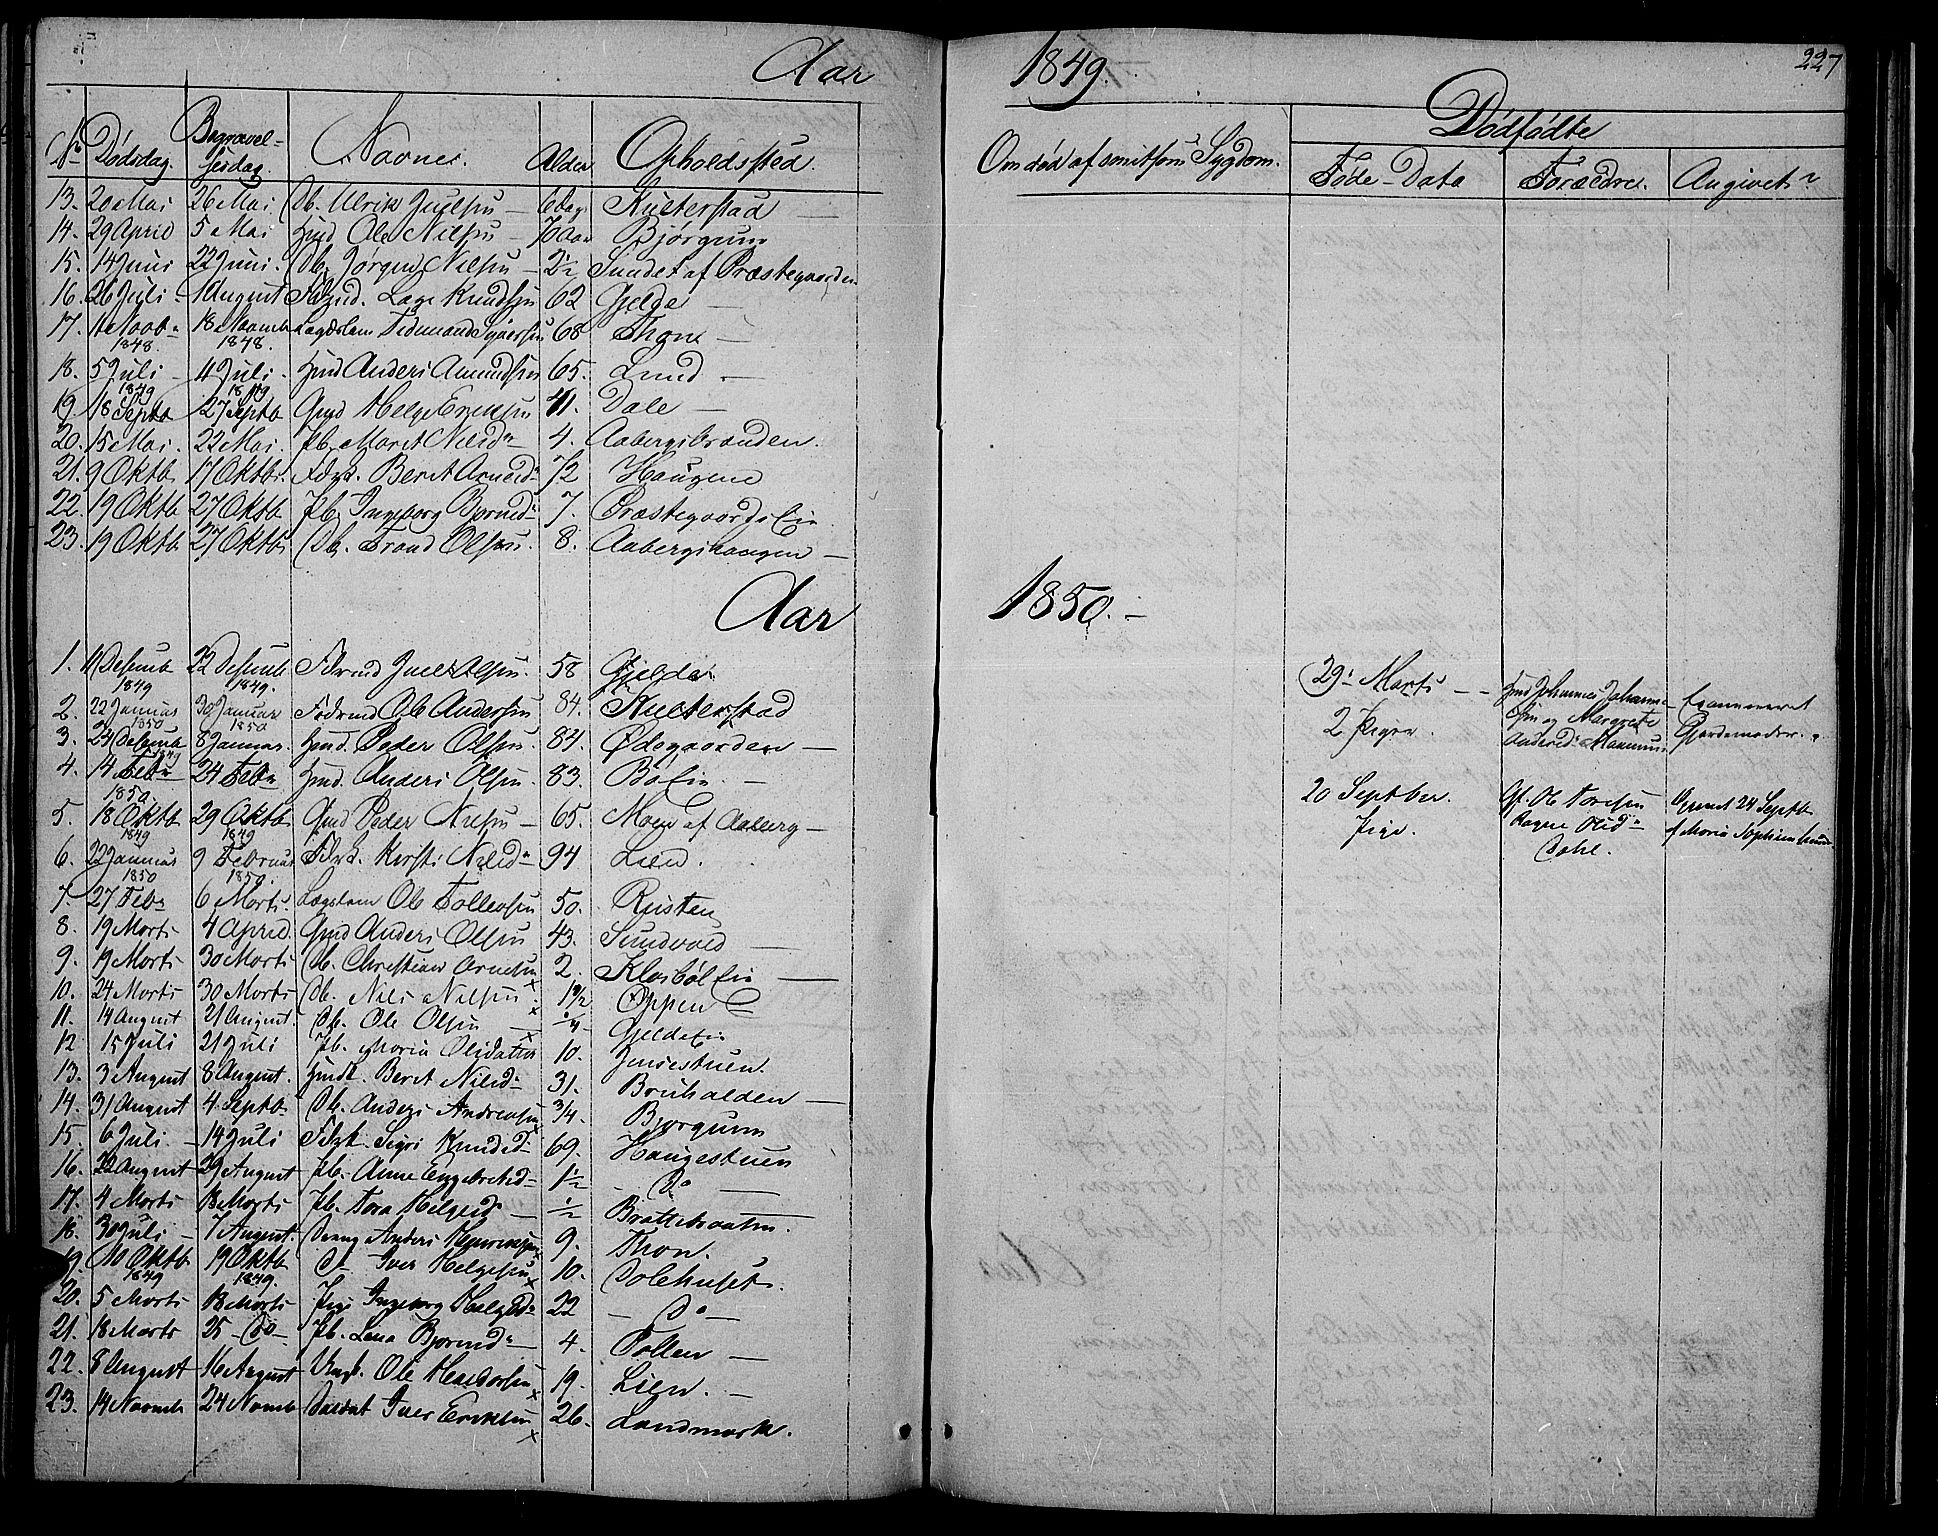 Aar 1849. 227
Dødfødte
No Dødsdag. Begravelsesdag. Navne. Alder Opholdssted. Om død af smitsom Sygdom. Føde-Data Forældre. Angivet
13. 20 Mai 26 Mai Db. Ulrik Juelsen 6 Dag Kulterstad
14. 29 April 5 Mai Hmd Ole Nilsen 70 Aar Bjørgum
15. 14 Juni 22 Juni. Db. Jørgen Nilsen 2½ Sundet af Præstegaarden
16. 26 Juli 1 August Fdrmd. Lage Knudsen 62 Gjelde
17. 11 Novb 1848. 18 Novemb 1848. Lægdslem Tidemand Syversen 68 Thon
18. 5 Juli 1849 11 Juli 1849 Hmd Anders Amundsen 65. Lund
19 18 Septb 27 Septb Gmd Helge Eriksen 41. Dale
20. 15 Mai. 22 Mai. Pb. Marit Nilsd 4. Aabergsbraaden.
21. 9 Oktb 17 Oktb. Fdrk. Berit Arnesd 72 Haugene
22. 19 Oktb 27 Oktb Pb. Ingeborg Bjørnsd 7. Præstegaards Eie
23. 19 Oktb 27 Oktb Db. Trond Olsen. 8. Aabergshaugen
Aar 1850.
1. 11 Desemb 1849 22 Desemb 1849. Fdrmd Juel Olsen. 58 Gjelde
2. 22 Januar 1850 30 Januar 1850 Fodrmd Ole Andersen 84. Kulterstad
3. 24 Desemb 1849 8 Januar. Hmd. Peder Olsen. 84. Ødegaarden
4. 14 Febr 1850. 24 Febr Hmd. Anders Olsen. 83. Bø Eie.
5. 18 Oktb 1849 29 Oktb 1849 Gmd Peder Nilsen 65. Moen af Aaberg
6. 22 Januar 1850 9 Februar 1850. Fdrk. Kersti Nilsd 94 Lien.
7. 27 Febr 6 Marts. Lægslem Ole Tollevsen 50. Rusten
8. 19 Marts 4 April. Gmd Anders Olsen 43. Sundvold
9. 19 Marts 30 Marts Db. Christian Arnesen 2. Klosbøl Eie
10. 24 Marts 30 Marts Db. Nils Nilsen 1½ Oppen
11. 14 August 21 August. Db. Ole Olsen ¼ Gjelde Eie
12. 15 Juli 21 Juli Pb. Maria Olsdatter 10. Jensestuen.
13. 3 August 8 August. Hmdk. Berit Nilsd 31. Bruhalden
14. 31 August 4 Septb Db. Anders Andreasen ¾. Bjørgum
15. 6 Juli 14 Juli Fdrk Sigri Knudsd 69. Haugestuen
16. 22 August 29 August Pb. Anne Engebretsd 1½ Do
17. 4 Marts 13 Marts Pb. Tora Helgesd ½ Brattebraaten.
18. 30 Juli 7 August. Dreng Anders Henriksen 9. Thon.
19. 10 Oktb 1849 19 Oktb 1849. Do Iver Helgesen 10. Dolehuset
20. 5 Marts 13 Marts Pige Ingeborg Helgesd 22 Do
21. 18 Marts 25 Do Pb. Lena Bjørnsd 4. Tollen
22. 8 August 16 August Ungk. Ole Haldorsen 19. Lien.
23. 14 Novemb 24 Novemb Soldat Iver Eriksen 26. Landmark.
29 Marts 2 Piger. Hmd Johannes Johannesen og Margrete Andersd Examineret Gjordemoder.
20 Septber. Pige. Gf. Ole Toresen Ragne Olsd Dale. Opgivet 24 Septb f Maria Sophia